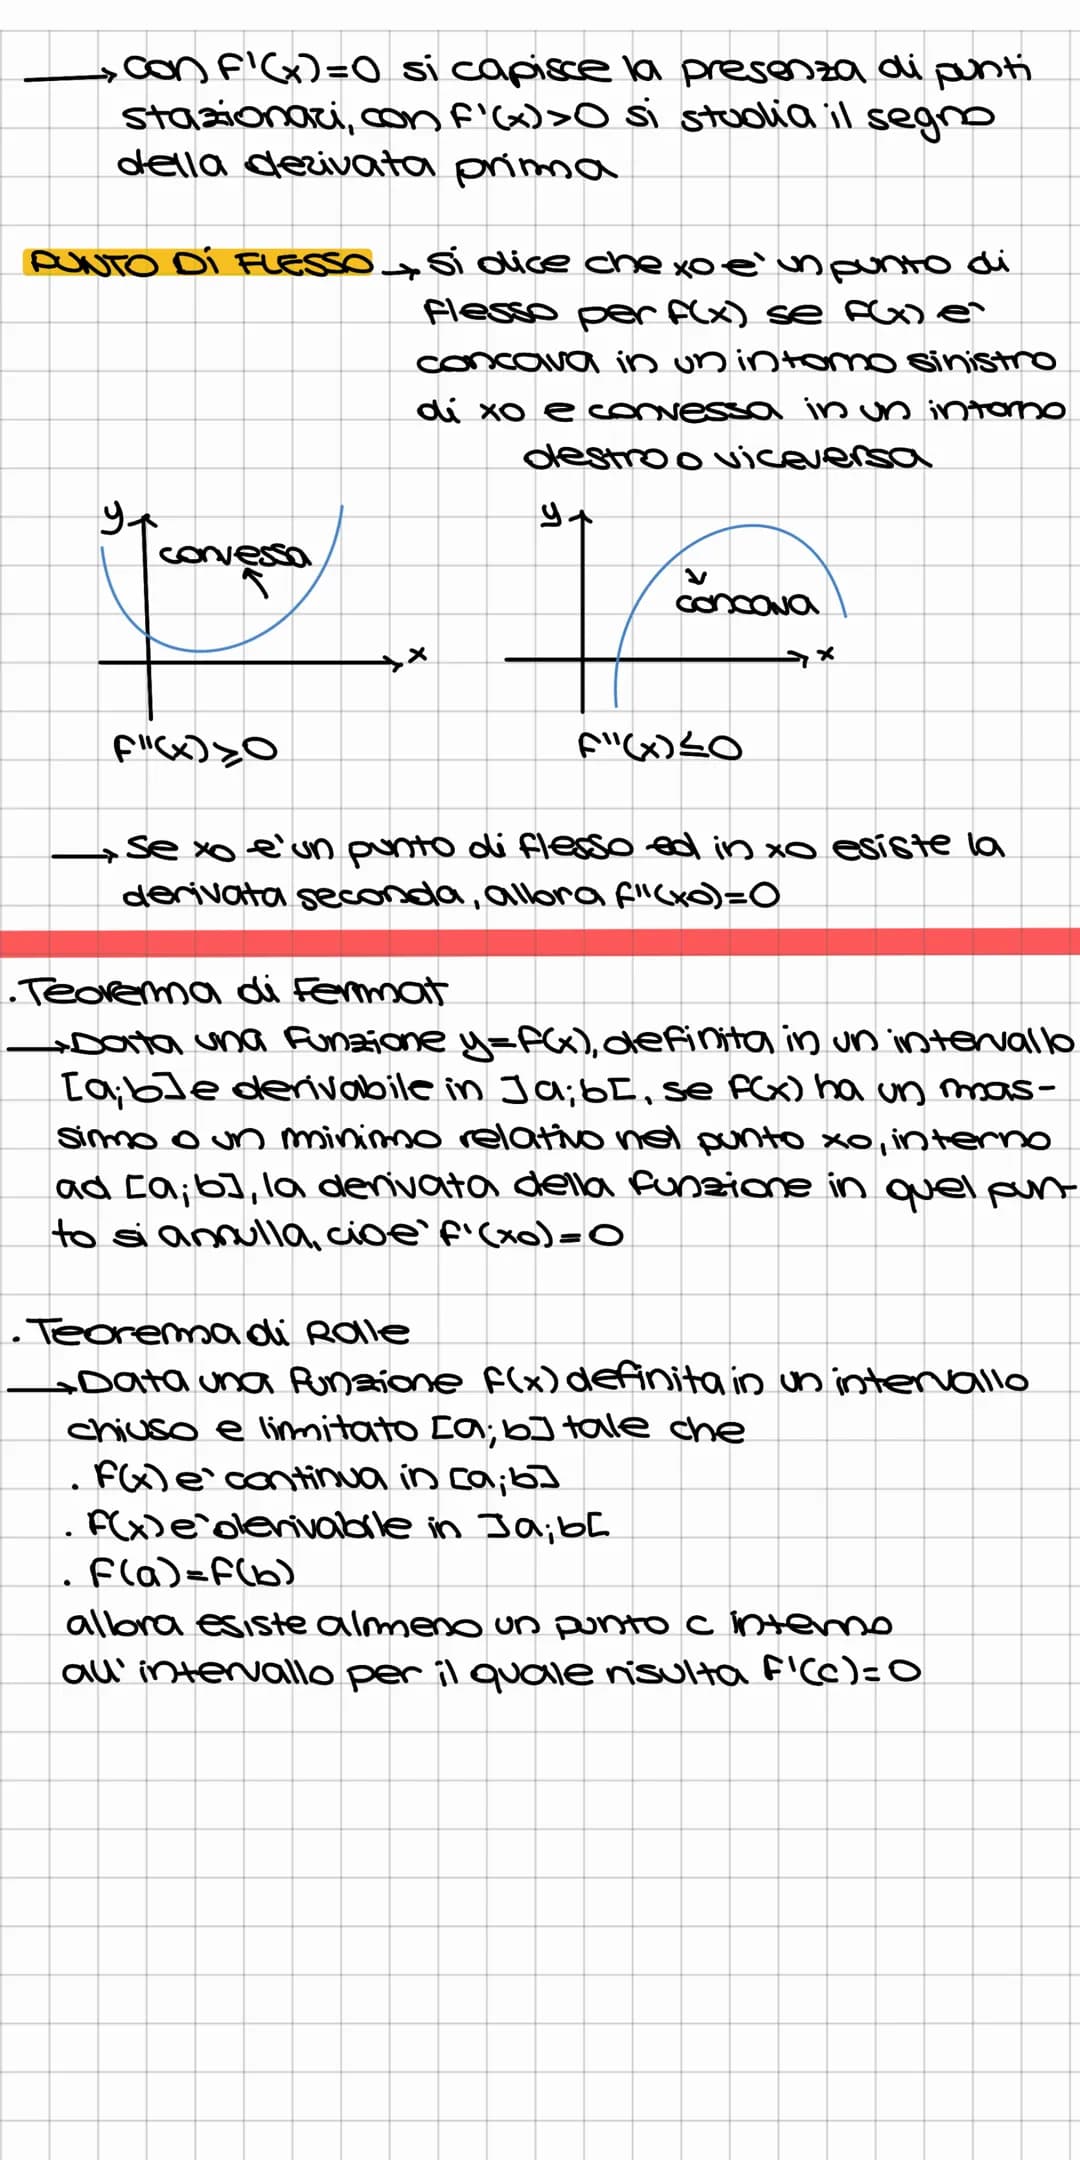 → con f'(x)=0 si capisce la presenza di punti
stazionari, con f'(x)>0 si studia il segno
della derivata prima
PUNTO Di FLESSO → si dice che xo e' un punto di
flesso per f(x) se f(x) e'
concava in un intorno sinistro
di xo e convessa in un intorno
destro o viceversa
y
convessa
x
f''(x)⩾0
y
concava
x
f''(x)≤0
→ se xo e' un punto di flesso ed in xo esiste la
derivata seconda, allora f''(xo)=0
.Teorema di Fermat
→ Data una funzione y=f(x), definita in un intervallo
[a;b] e derivabile in ]a;b[, se f(x) ha un mas-
simo o un minimo relativo nel punto xo, interno
ad [a;b], la derivata della funzione in quel pun-
to si annulla, cioe' f'(xo)=0
.Teorema di Rolle
→ Data una funzione f(x) definita in un intervallo
chiuso e limitato [a;b] tale che
. f(x) e' continua in [a;b]
. f(x) e' derivabile in ]a;b[
. f(a)=f(b)
allora esiste almeno un punto c interno
all'intervallo per il quale risulta f'(c)=0